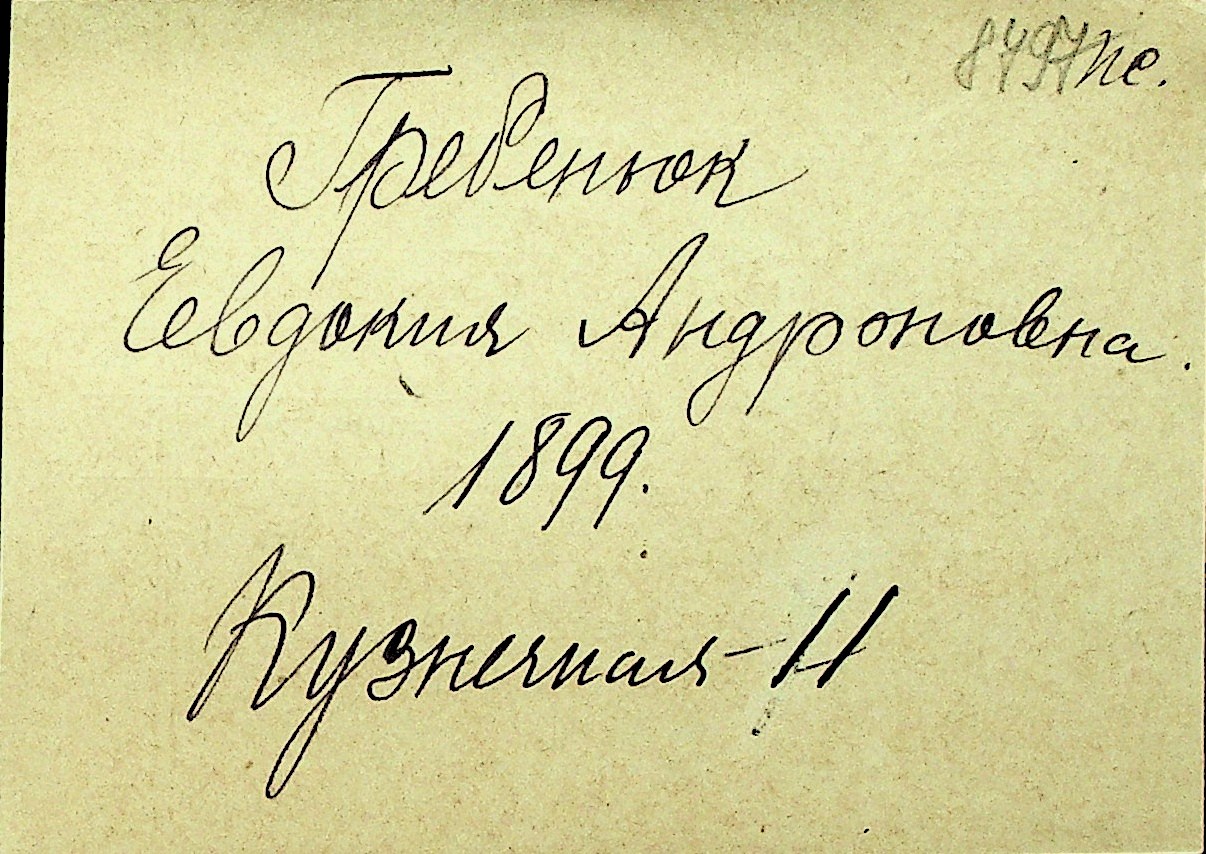 8497 пе.
Гребенюк
Евдокия Андроновна.
1899.
Кузнечная - 11